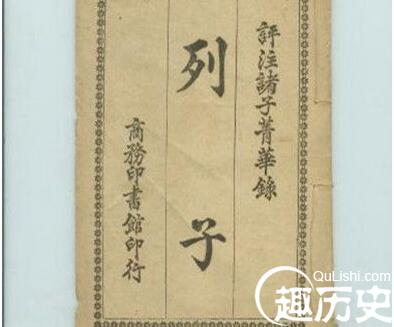 評注諸子菁華錄
列子
商務印書館印行
QuLishi.com
趣历史